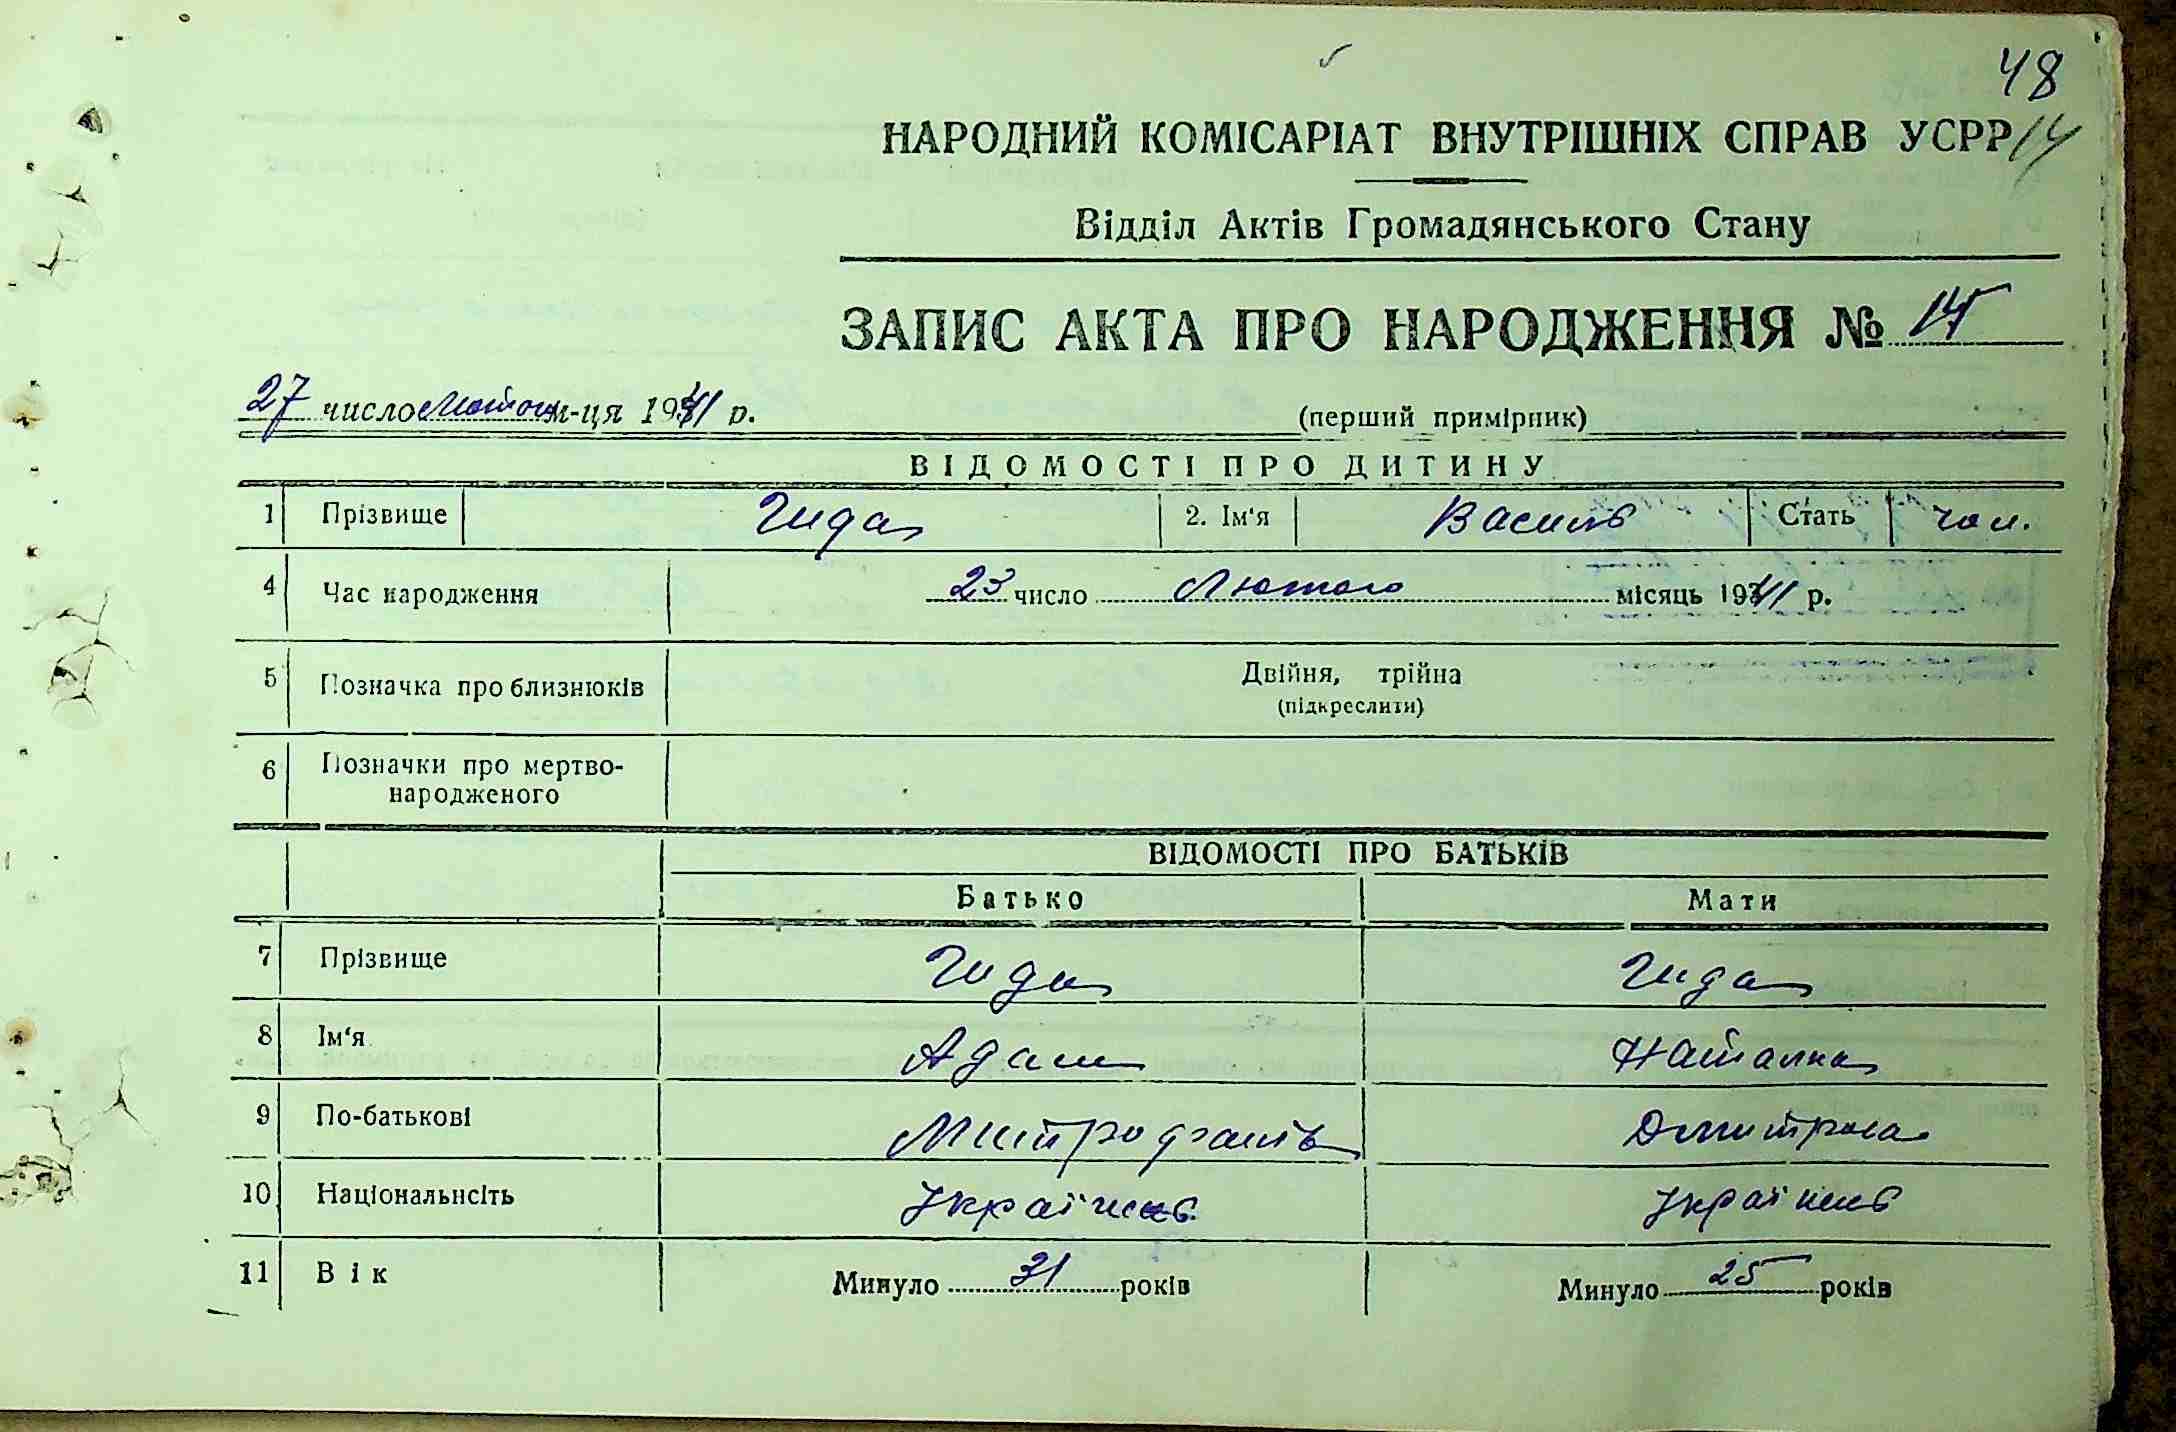 48
НАРОДНИЙ КОМІСАРІАТ ВНУТРІШНІХ СПРАВ УСРР
14
Відділ Актів Громадянського Стану
ЗАПИС АКТА ПРО НАРОДЖЕННЯ №
27 число лютого м-ця 1941 р. (перший примірник)
ВІДОМОСТІ ПРО ДИТИНУ
1 Прізвище Гида 2. Ім'я Василь Стать чол.
4 Час народження 23 число Лютого місяць 1941 р.
5 Позначка про близнюків Двійня, трійна
(підкреслити)
6 Позначки про мертво-
народженого
ВІДОМОСТІ ПРО БАТЬКІВ
Батько Мати
7 Прізвище Гида Гида
8 Ім'я Адам Наталка
9 По-батькові Митрофанів Дмитрова
10 Національність Українець Українець
11 Вік Минуло 31 років Минуло 25 років